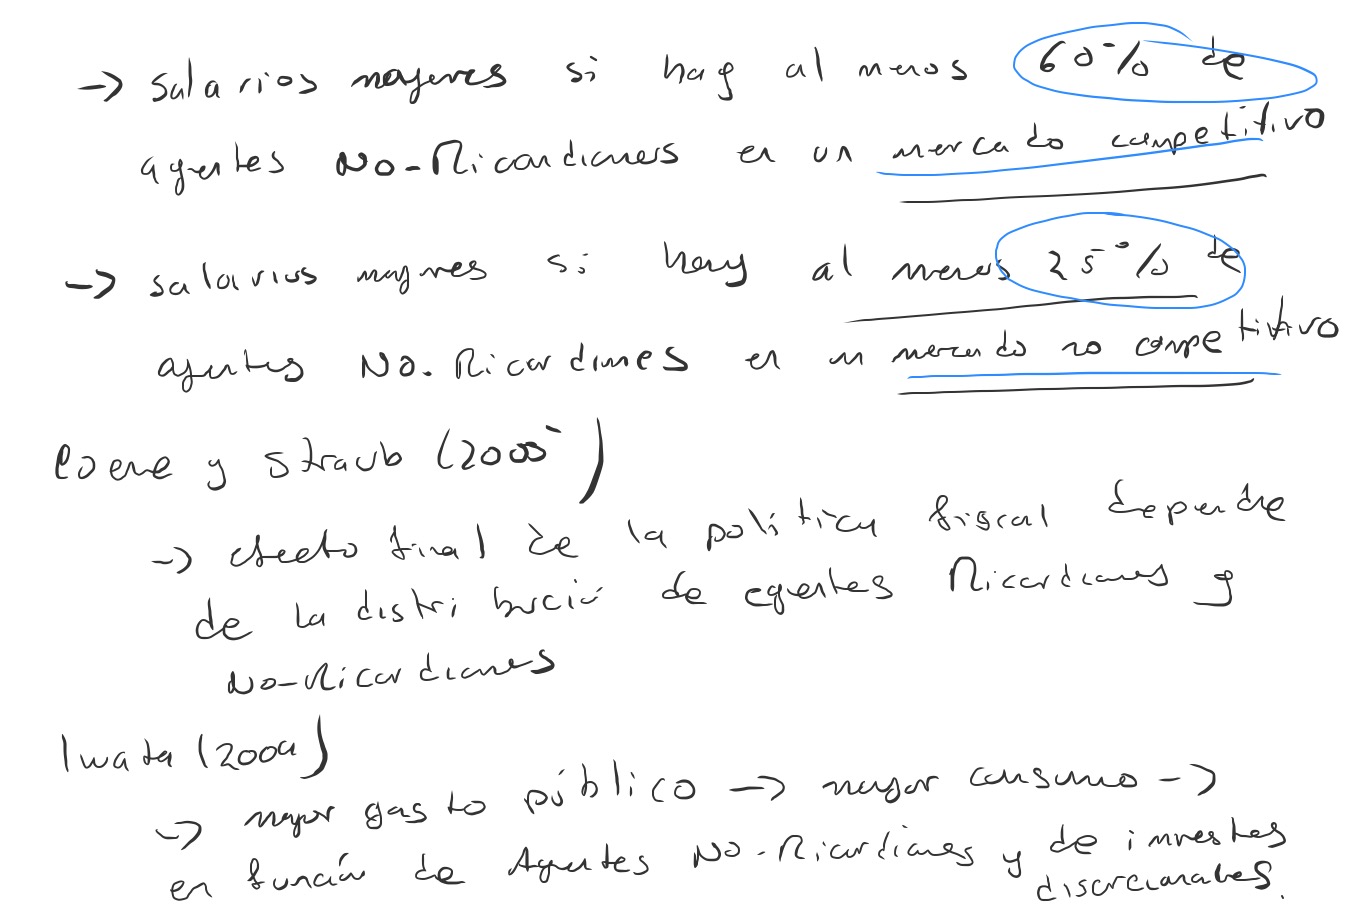 -> salarios mayores si hay al menos 60% de
agentes No-Ricardianos en un mercado competitivo
-> salarios mayores si hay al menos 25% de
agentes No-Ricardianos en un mercado no competitivo
Coene y Straub (2005)
-> efecto final de la política fiscal depende
de la distribución de agentes Ricardianos y
No-Ricardianos
Iwata (2009)
-> mayor gasto público -> mayor consumo ->
en función de Agentes No-Ricardianos y de
discrecionales.